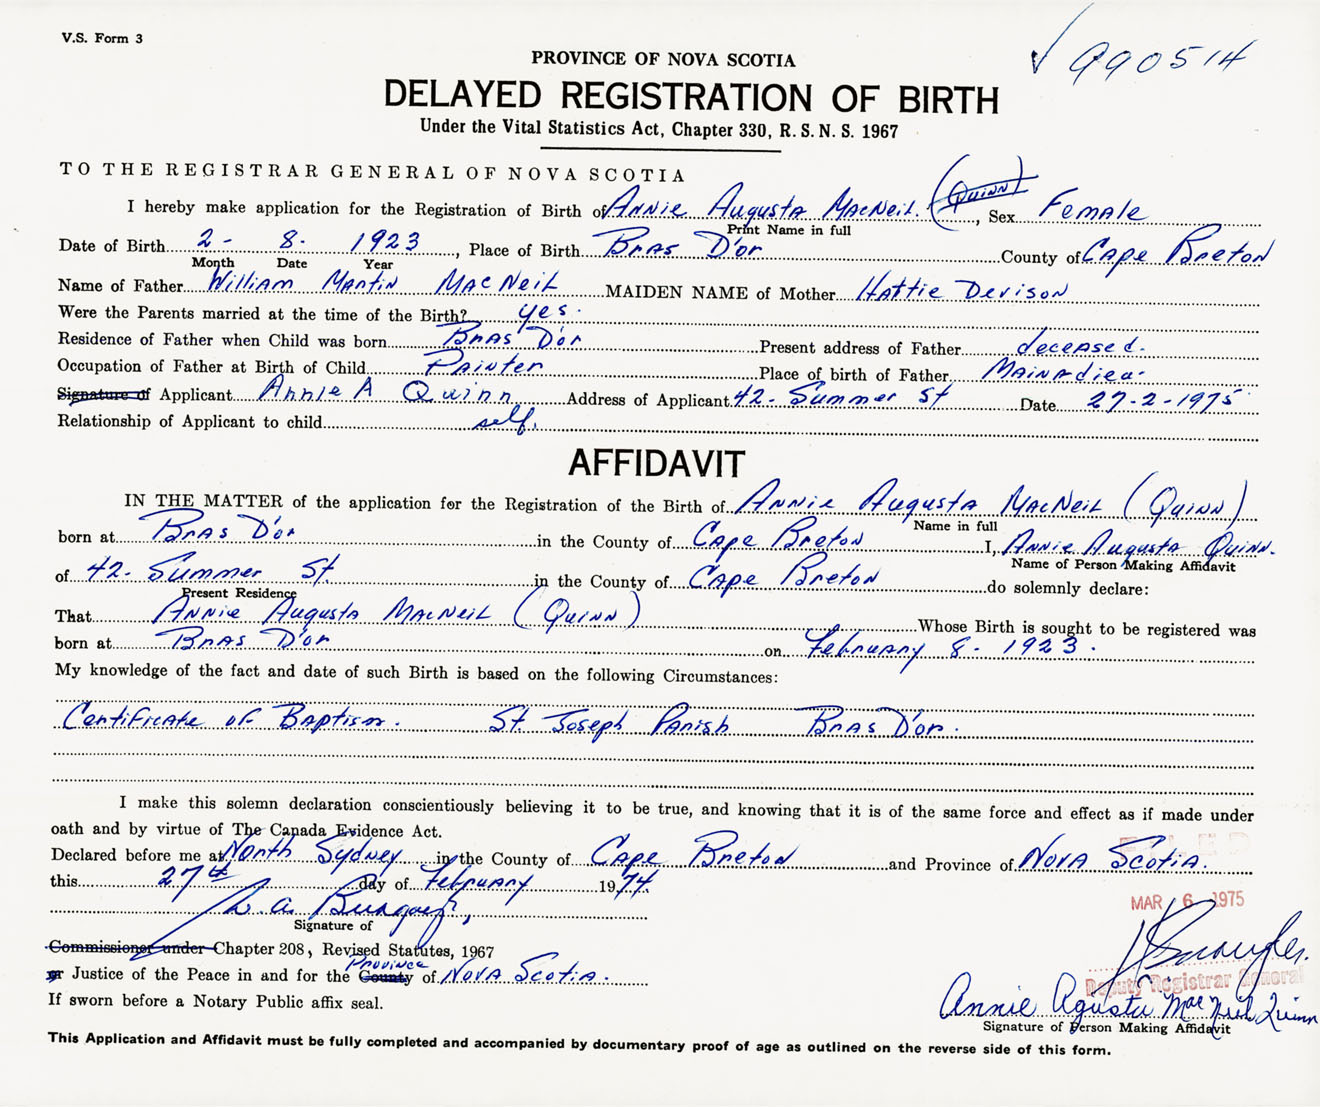 V.S. Form 3
✓ 990514
PROVINCE OF NOVA SCOTIA
DELAYED REGISTRATION OF BIRTH
Under the Vital Statistics Act, Chapter 330, R. S. N. S. 1967
TO THE REGISTRAR GENERAL OF NOVA SCOTIA
I hereby make application for the Registration of Birth of Annie Augusta MacNeil (Quinn), Sex Female
Print Name in full
Date of Birth 2- 8. 1923, Place of Birth Bras D'or County of Cape Breton
Month Date Year
Name of Father William Martin MacNeil MAIDEN NAME of Mother Hattie Devison
Were the Parents married at the time of the Birth? yes.
Residence of Father when Child was born Bras D'or Present address of Father deceased.
Occupation of Father at Birth of Child Painter Place of birth of Father Mainadieu.
Signature of Applicant Annie A Quinn Address of Applicant 42. Summer St Date 27-2-1975
Relationship of Applicant to child self.
AFFIDAVIT
IN THE MATTER of the application for the Registration of the Birth of Annie Augusta MacNeil (Quinn)
Name in full
born at Bras D'or in the County of Cape Breton I, Annie Augusta Quinn.
Name of Person Making Affidavit
of 42. Summer St. in the County of Cape Breton do solemnly declare:
Present Residence
That Annie Augusta MacNeil (Quinn) Whose Birth is sought to be registered was
born at Bras D'or on February 8. 1923.
My knowledge of the fact and date of such Birth is based on the following Circumstances:
Certificate of Baptism. St. Joseph Parish Bras D'or.
I make this solemn declaration conscientiously believing it to be true, and knowing that it is of the same force and effect as if made under
oath and by virtue of The Canada Evidence Act.
FILED
Declared before me at North Sydney in the County of Cape Breton and Province of Nova Scotia.
this 27th day of February 1974.
MAR 6 1975
Signature of
Commissioner under Chapter 208, Revised Statutes, 1967
Province
or Justice of the Peace in and for the County of Nova Scotia.
Deputy Registrar General
If sworn before a Notary Public affix seal.
Annie Agusta MacNeil Quinn
Signature of Person Making Affidavit
This Application and Affidavit must be fully completed and accompanied by documentary proof of age as outlined on the reverse side of this form.